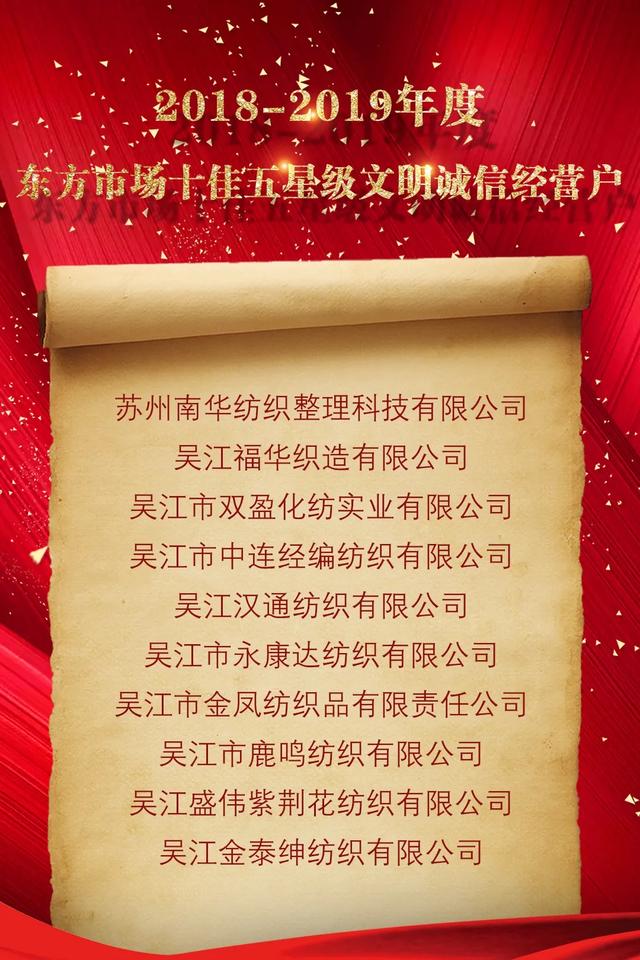 2018-2019年度
东方市场十佳五星级文明诚信经营户
苏州南华纺织整理科技有限公司
吴江福华织造有限公司
吴江市双盈化纺实业有限公司
吴江市中连经编纺织有限公司
吴江汉通纺织有限公司
吴江市永康达纺织有限公司
吴江市金凤纺织品有限责任公司
吴江市鹿鸣纺织有限公司
吴江盛伟紫荆花纺织有限公司
吴江金泰绅纺织有限公司